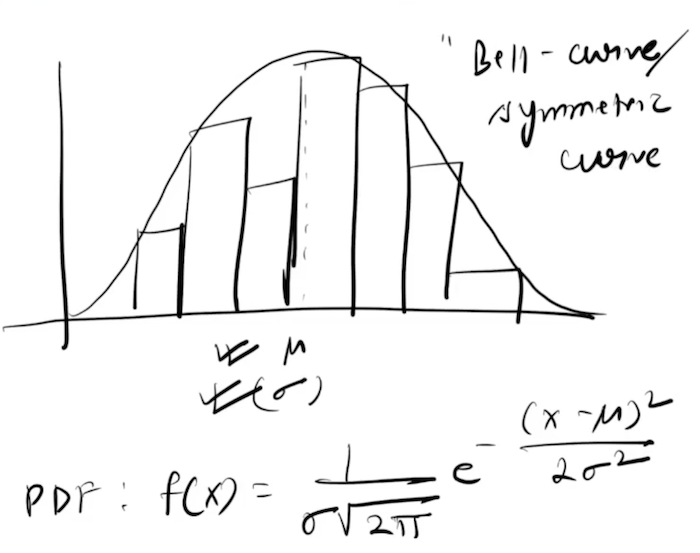 " Bell-curve/
symmetric
curve
μ
(σ)
PDF : f(x) = \frac{1}{σ√2π} e^{-\frac{(x-μ)^2}{2σ^2}}